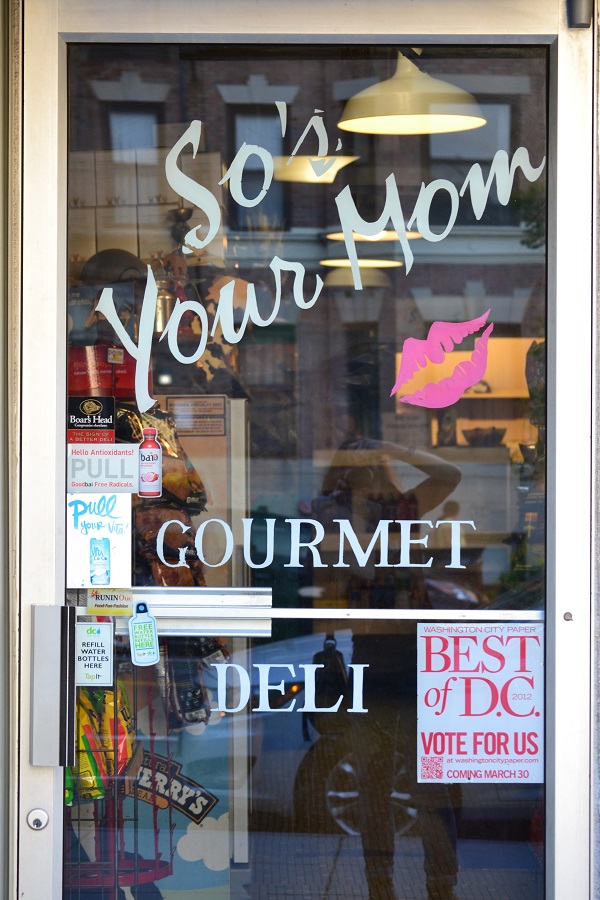 So's
Your Mom
Boar's Head
THE SIGN OF
A BETTER DELI
Hello Antioxidants!
PULL
Goodbai Free Radicals.
bai
Pull
your Vita!
GOURMET
RUNIN Out
REFILL
WATER
BOTTLES
HERE
TapIt
FREE
WATER
BOTTLE
REFILLS
HERE
DELI
WASHINGTON CITY PAPER
BEST
of D.C.
2012
VOTE FOR US
at washingtoncitypaper.com
COMING MARCH 30